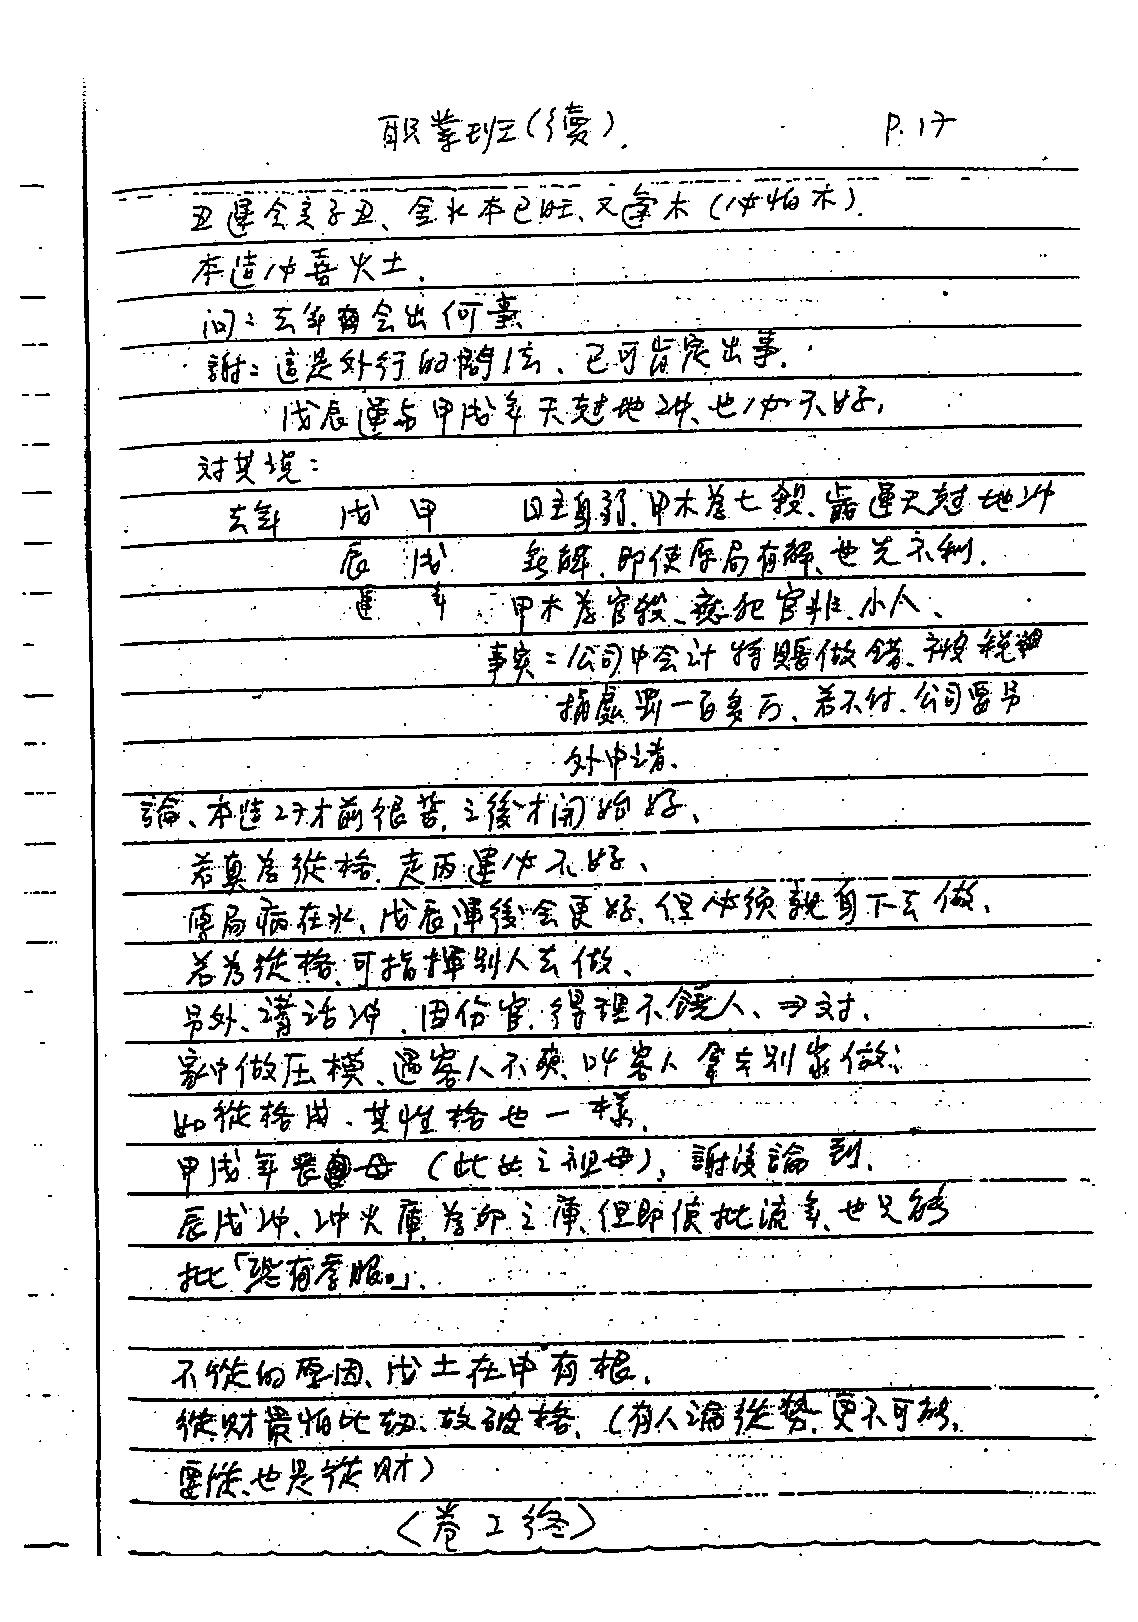 职業班(續). P.17
丑運会亥子丑、金水本已旺、又逢木(必怕木).
本造必喜火土.
问:去年會出何事
謝:這是外行的問法、已可肯定出事.
戊辰運与甲戌年天尅地冲、也必不好.
对其説:
去年 戊 甲 日主身弱、甲木為七殺、歲運天尅地冲
辰 戌 無解、即使原局有解、也先不利.
運 年 甲木為官殺、應犯官非、小人、
事实:公司中会计將賬做错、被税
捕處罰一百多万、若不付、公司要另
外申请.
論、本造27才前很苦、之後才開始好、
若真為從格、走丙運必不好、
原局病在水、戊辰運後会更好、但必须親自下去做、
若為從格、可指揮别人去做、
另外、講話冲、因伤官、得理不饒人、⇒对.
家中做压模、遇客人不爽、叫客人拿去别家做;
如從格成、其性格也一樣.
甲戌年喪母(此女之祖母)、謝没論到.
辰戌冲、冲火庫、為印之庫、但即使批流年、也只能
批「恐有孝服。」.
不從的原因、戊土在申有根.
從財最怕比劫、故破格.(有人論從势、更不可能、
要從、也是從财)
(卷工终)